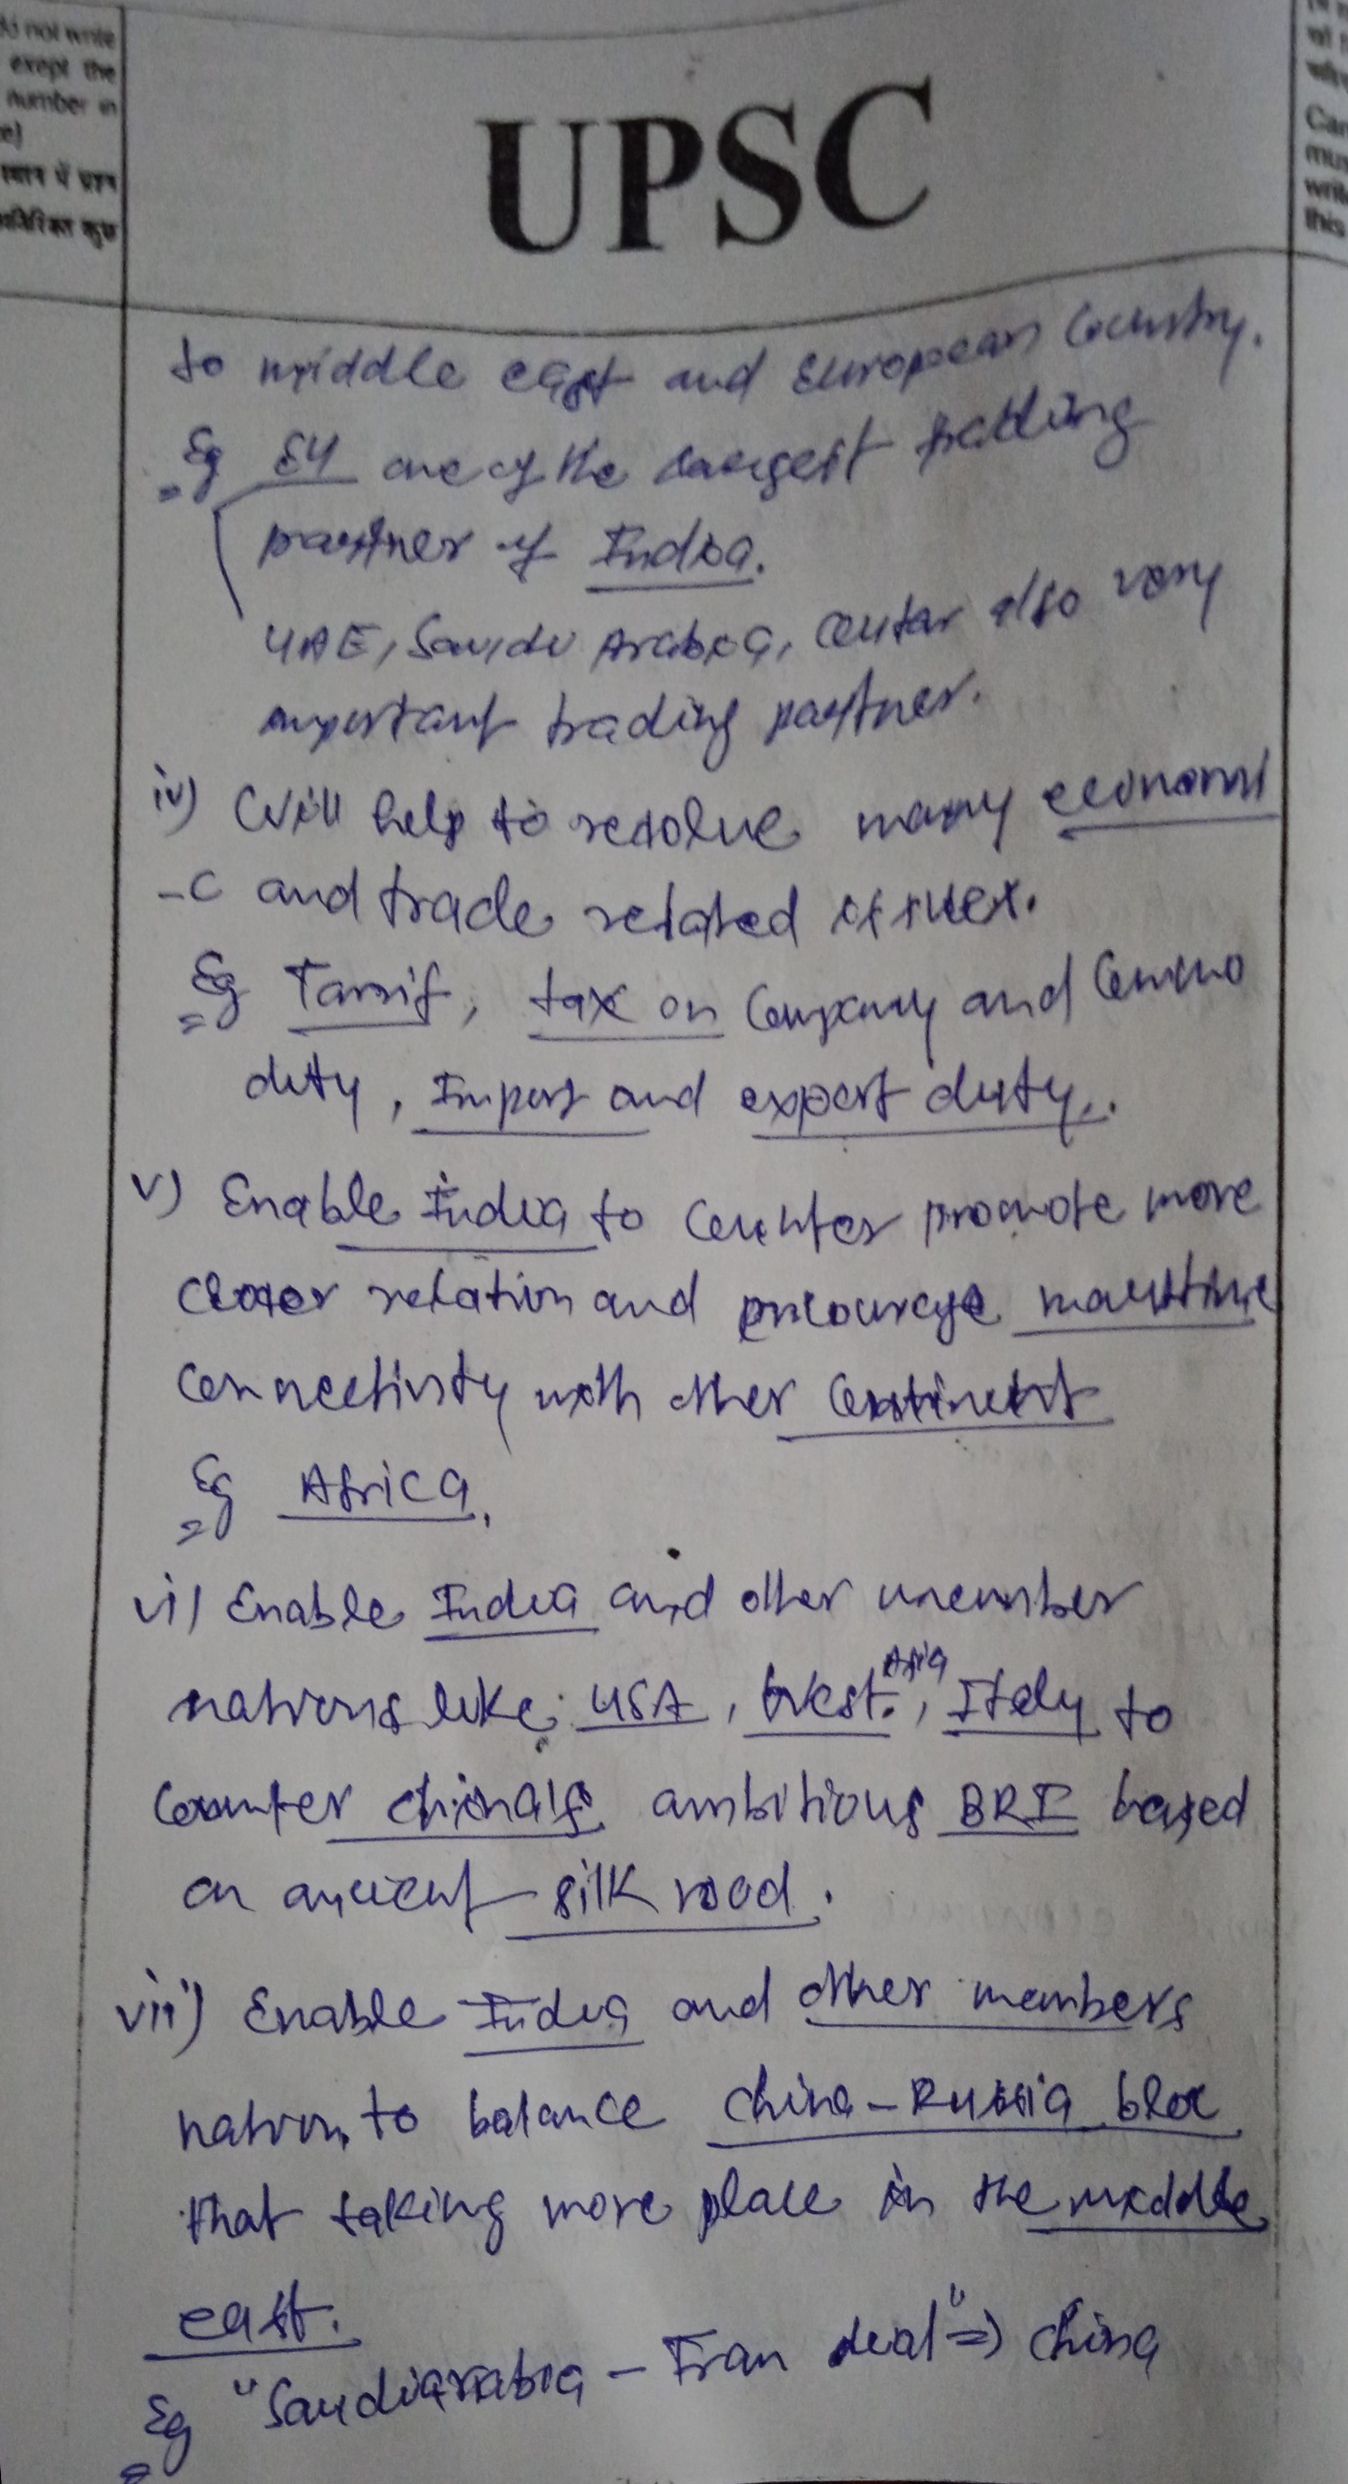 do not write
exept the
number in
UPSC
Can
mus
write
this
to middle east and European Country.
Eg EU one of the largest trading
partner of India.
UAE, Saudi Arabia, also very
important trading partner.
iv) Will help to resolve many economi
-c and trade related issues.
Eg Tarrif, tax on Company and
duty, Import and export duty..
v) Enable India to Counter promote more
closer relation and encourage maritime
connectivity with other Continent
Eg Africa.
vi) Enable India and other member
nations like: USA, West. Asia, Italy to
Counter China's ambitious BRI based
on ancient silk road.
vii) Enable India and other members
nation, to balance China-Russia bloc
that taking more place in the middle
east.
Eg "Saudiarabia - Iran deal" => China